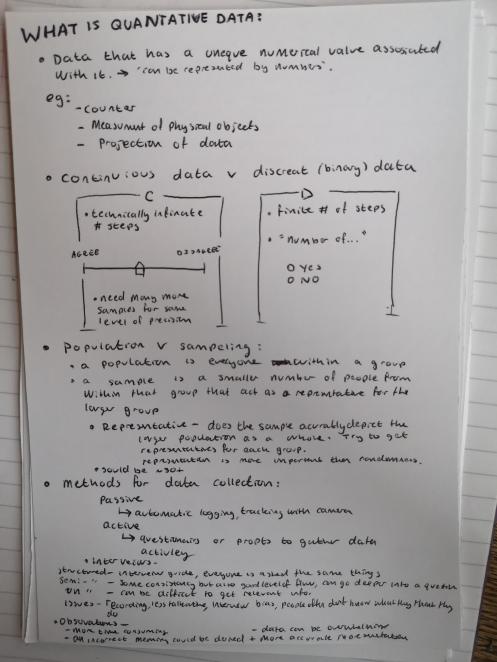 WHAT IS QUANTATIVE DATA:
• Data that has a uneque numerical value assosiated
with it. → 'can be represented by numbers'.
eg:
- counter
- Measurment of physical objects
- Projection of data
• continuious data v discreat (binary) data
C
• technically infinate
# steps
AGREE DISAGREE
• need many more
samples for same
level of precision
D
• finite # of steps
• "number of..."
O Yes
O NO
• Population v sampeling:
• a population is everyone within a group
• a sample is a smaller number of people from
within that group that act as a representative for the
larger group
• Representative - does the sample acuratly depict the
larger population as a whole. Try to get
representatives for each group.
representation is more important then randomness.
• sould be ~30+
• Methods for data collection:
Passive
↳ automatic logging, tracking with camera
active
↳ questionairs or propts to gather data
activley
• Interviews -
structured - interview guide, everyone is asked the same things
Semi - " - Some consistancy but also good level of flow, can go deeper into a question
un " - can be difficult to get relevant info.
issues - recording, less talkative, interview bias, people often don't know what they think they
do
• Observations -
- more time consuming - data can be overwhelming
- an incorrect meaning could be derived + more accurate representation